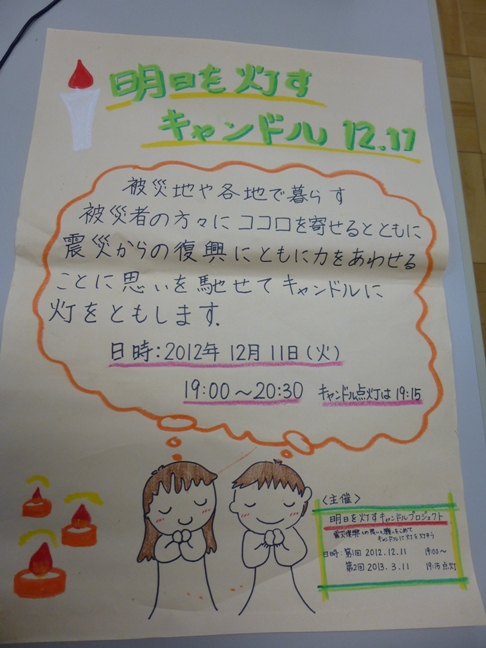 明日を灯す
キャンドル 12.11
被災地や各地で暮らす
被災者の方々にココロを寄せるとともに
震災からの復興にともに力をあわせる
ことに思いを馳せてキャンドルに
灯をともします.
日時:2012年 12月 11日(火)
19:00〜20:30 キャンドル点灯は 19:15
〈主催〉
明日を灯すキャンドルプロジェクト
キャンドルに灯を灯そう
日時:第1回 2012.12.11 19:00〜
第2回 2013.3.11 19:15点灯